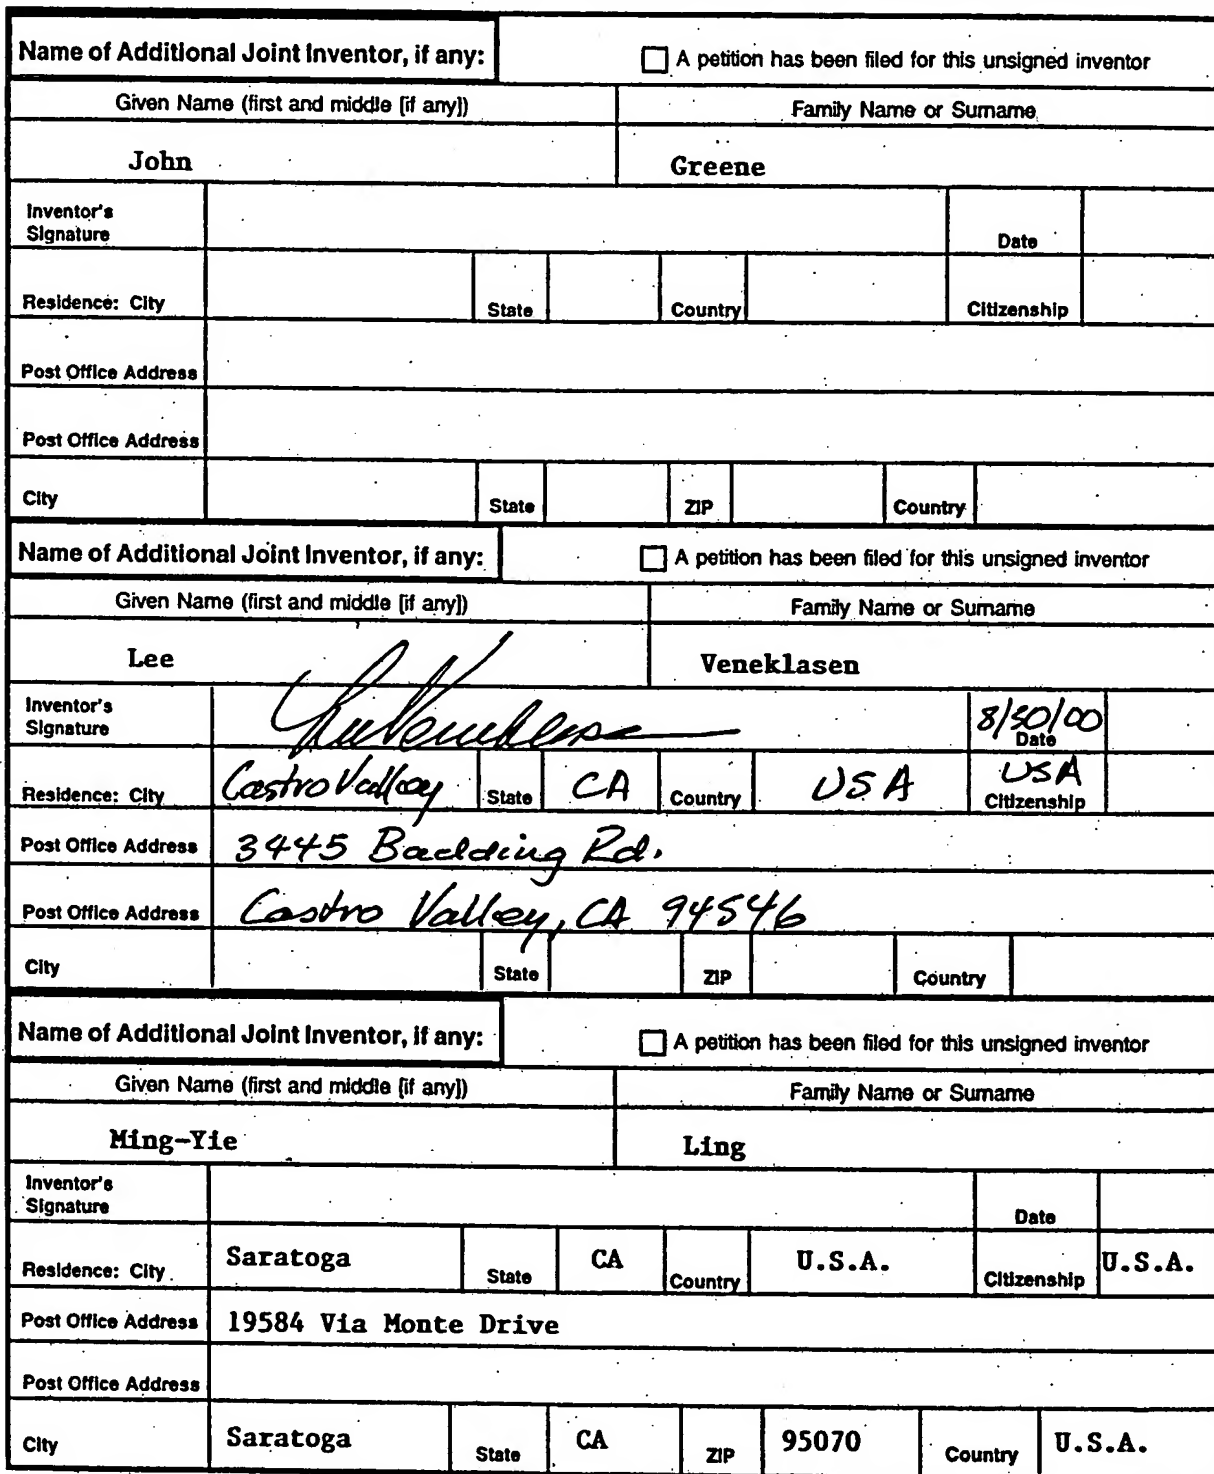 Name of Additional Joint Inventor, if any: A petition has been filed for this unsigned inventor
Given Name (first and middle [if any]) Family Name or Surname
John Greene
Inventor's
Signature Date
Residence: City State Country Citizenship
Post Office Address
Post Office Address
City State ZIP Country
Name of Additional Joint Inventor, if any: A petition has been filed for this unsigned inventor
Given Name (first and middle [if any]) Family Name or Surname
Lee Veneklasen
Inventor's 8/30/00
Signature Lee Veneklasen Date
Residence: City Castro Valley State CA Country USA USA Citizenship
Post Office Address 3445 Badding Rd.
Post Office Address Castro Valley, CA 94546
City State ZIP Country
Name of Additional Joint Inventor, if any: A petition has been filed for this unsigned inventor
Given Name (first and middle [if any]) Family Name or Surname
Ming-Yie Ling
Inventor's
Signature Date
Residence: City Saratoga State CA Country U.S.A. Citizenship U.S.A.
Post Office Address 19584 Via Monte Drive
Post Office Address
City Saratoga State CA ZIP 95070 Country U.S.A.